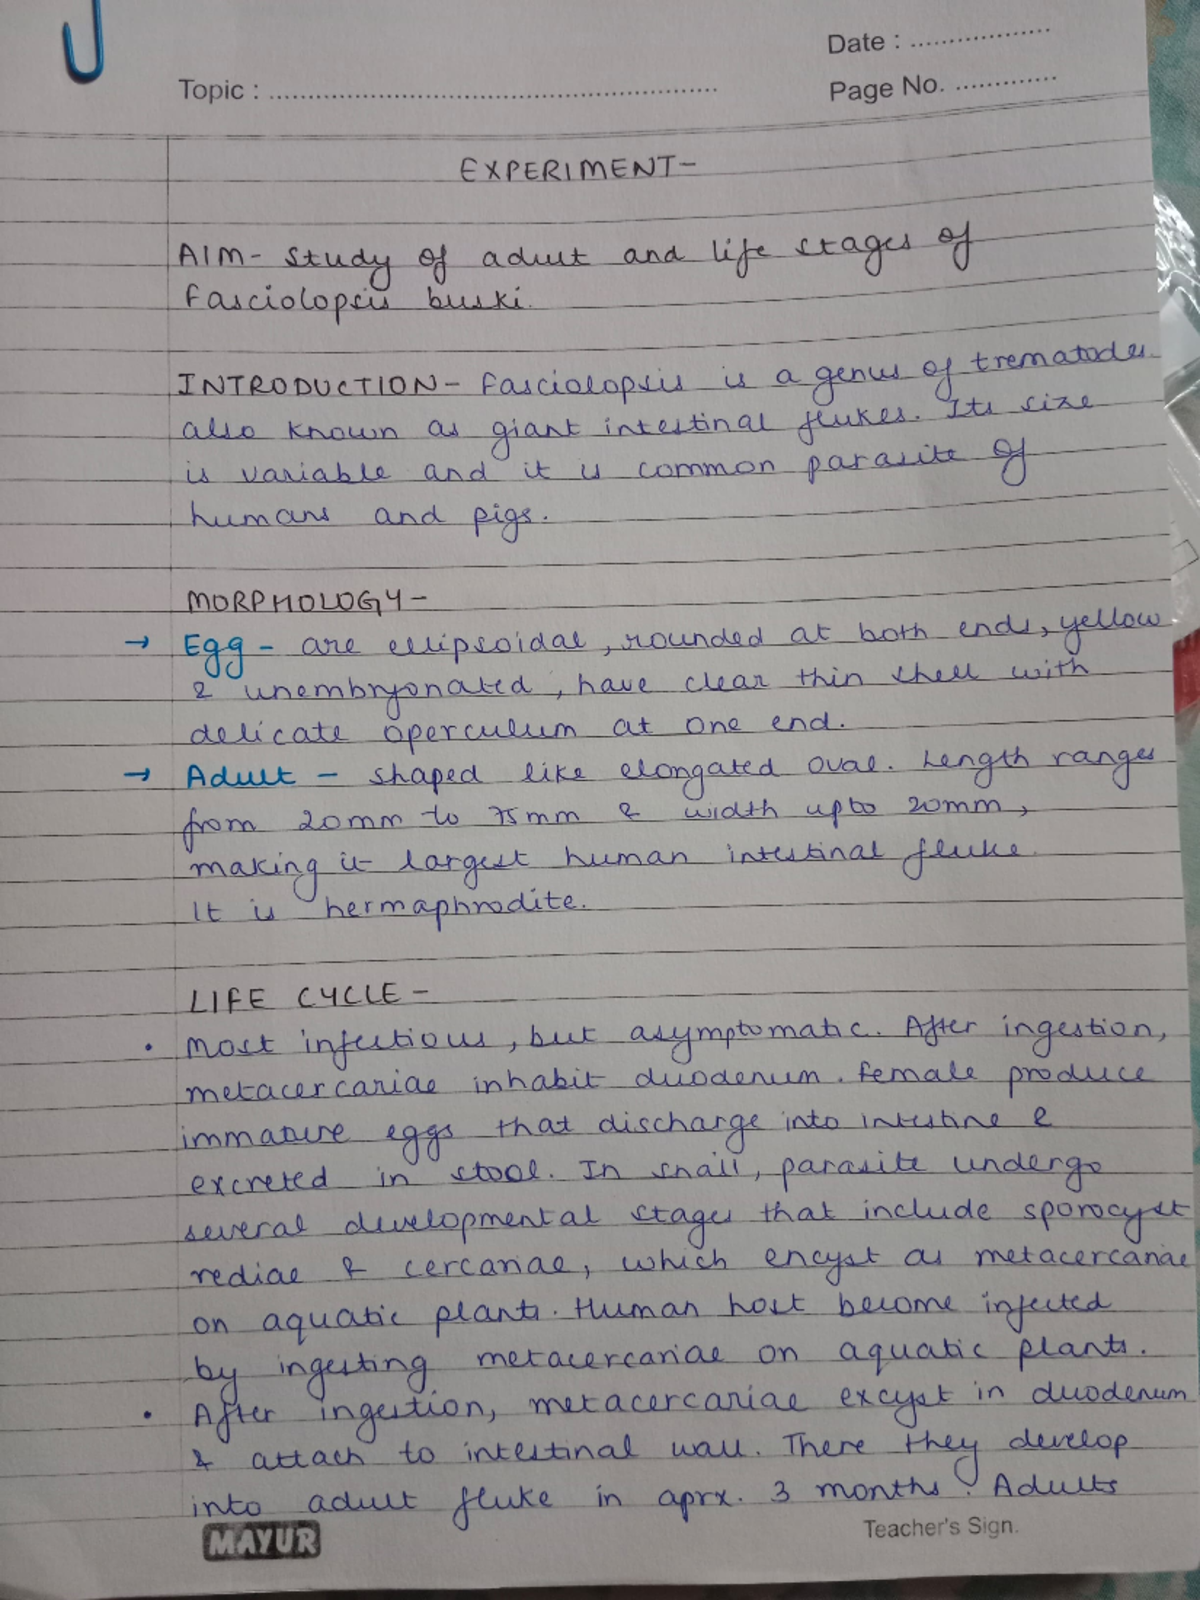 Date : ....................
Topic : ................................................................
Page No. ..............
EXPERIMENT-
AIM- Study of adult and life stages of
Fasciolopsis buski.
INTRODUCTION- Fasciolopsis is a genus of trematodes
also known as giant intestinal flukes. Its size
is variable and it is common parasite of
humans and pigs.
MORPHOLOGY-
→ Egg - are ellipsoidal, rounded at both ends, yellow
& unembryonated, have clear thin shell with
delicate operculum at one end.
→ Adult - shaped like elongated oval. Length ranges
from 20mm to 75mm & width upto 20mm,
making it largest human intestinal fluke.
It is hermaphrodite.
LIFE CYCLE-
• Most infectious, but asymptomatic. After ingestion,
metacercariae inhabit duodenum. Female produce
immature eggs that discharge into intestine &
excreted in stool. In snail, parasite undergo
several developmental stages that include sporocyst
rediae & cercariae, which encyst as metacercariae
on aquatic plants. Human host become infected
by ingesting metacercariae on aquatic plants.
• After ingestion, metacercariae excyst in duodenum
& attach to intestinal wall. There they develop
into adult fluke in aprx. 3 months. Adults
MAYUR
Teacher's Sign.